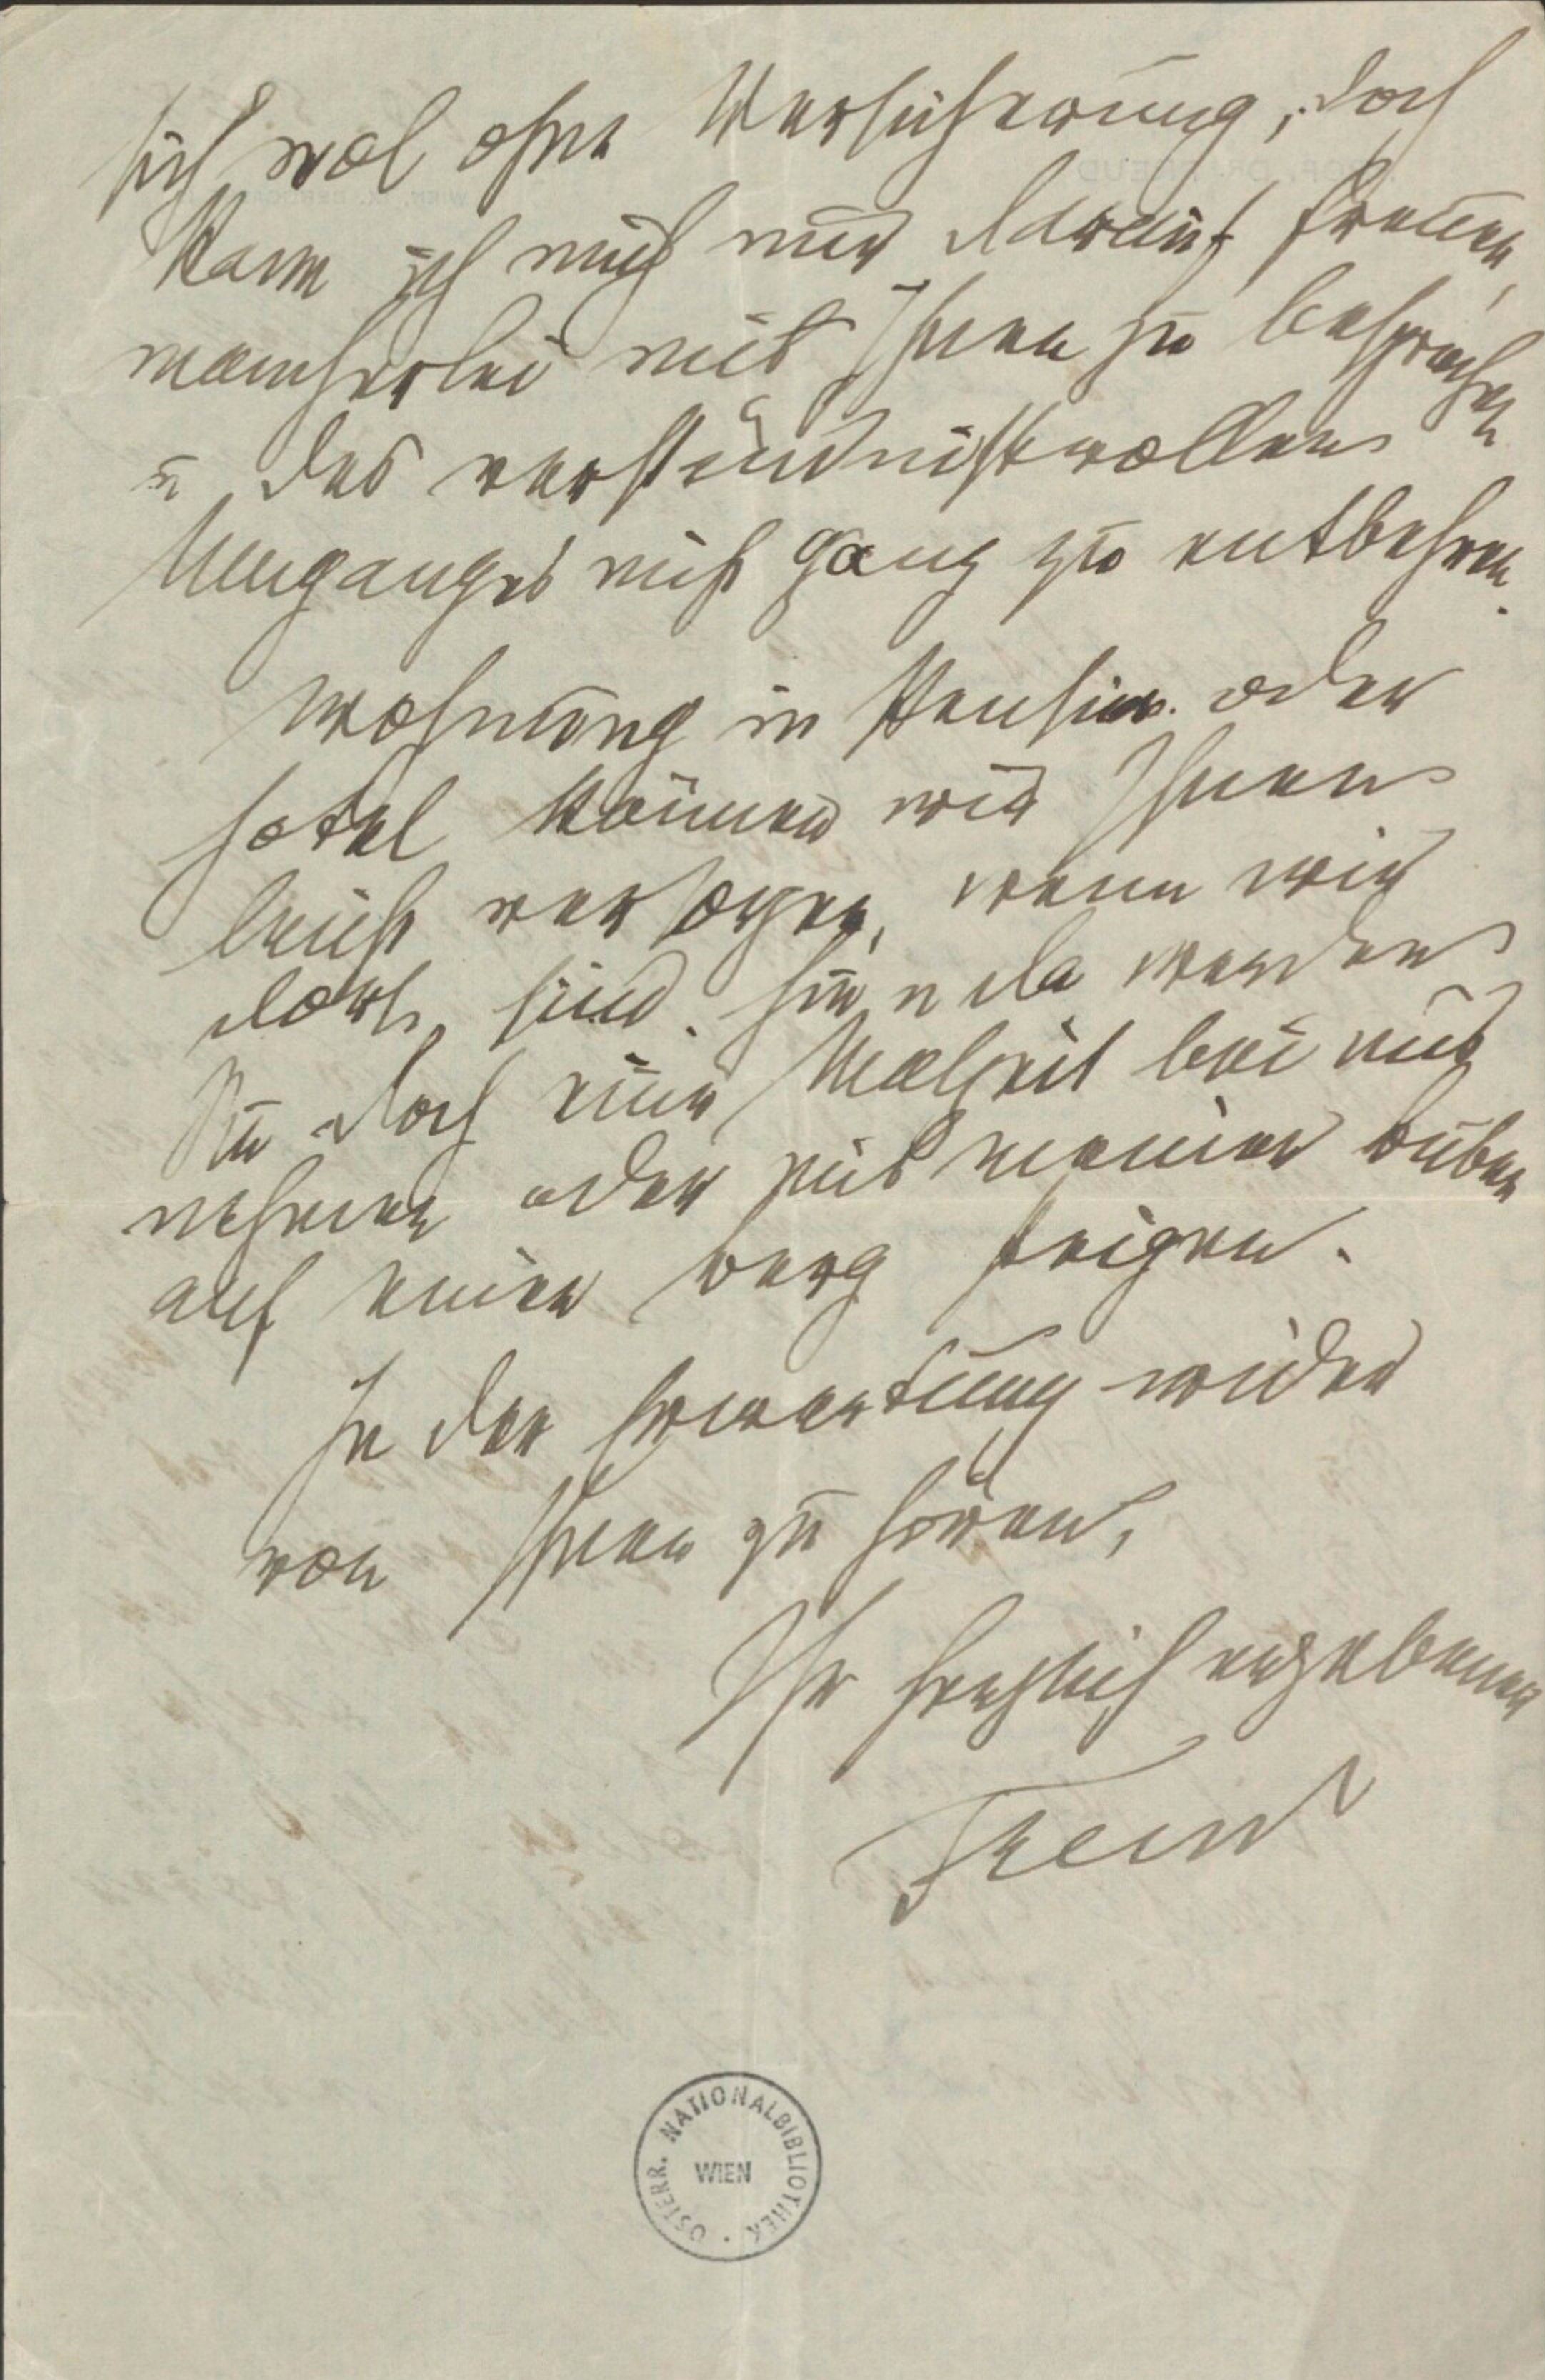 sich wol ohne Versicherung, doch
kann ich mich nur darauf freuen,
mancherlei mit Ihnen zu besprechen
u des verständnißvollen
Umganges nicht ganz zu entbehren.
Wohnung in Pension oder
Hotel können wir Ihnen
leicht versorgen, wenn wir
dort sind. Hie u da werden
Sie doch eine Malzeit bei uns
nehmen oder mit meinen Buben
auf einen Berg steigen.
In der Erwartung wieder
von Ihnen zu hören,
Ihr herzlich ergebener
Freud
ÖSTERR. NATIONALBIBLIOTHEK
WIEN